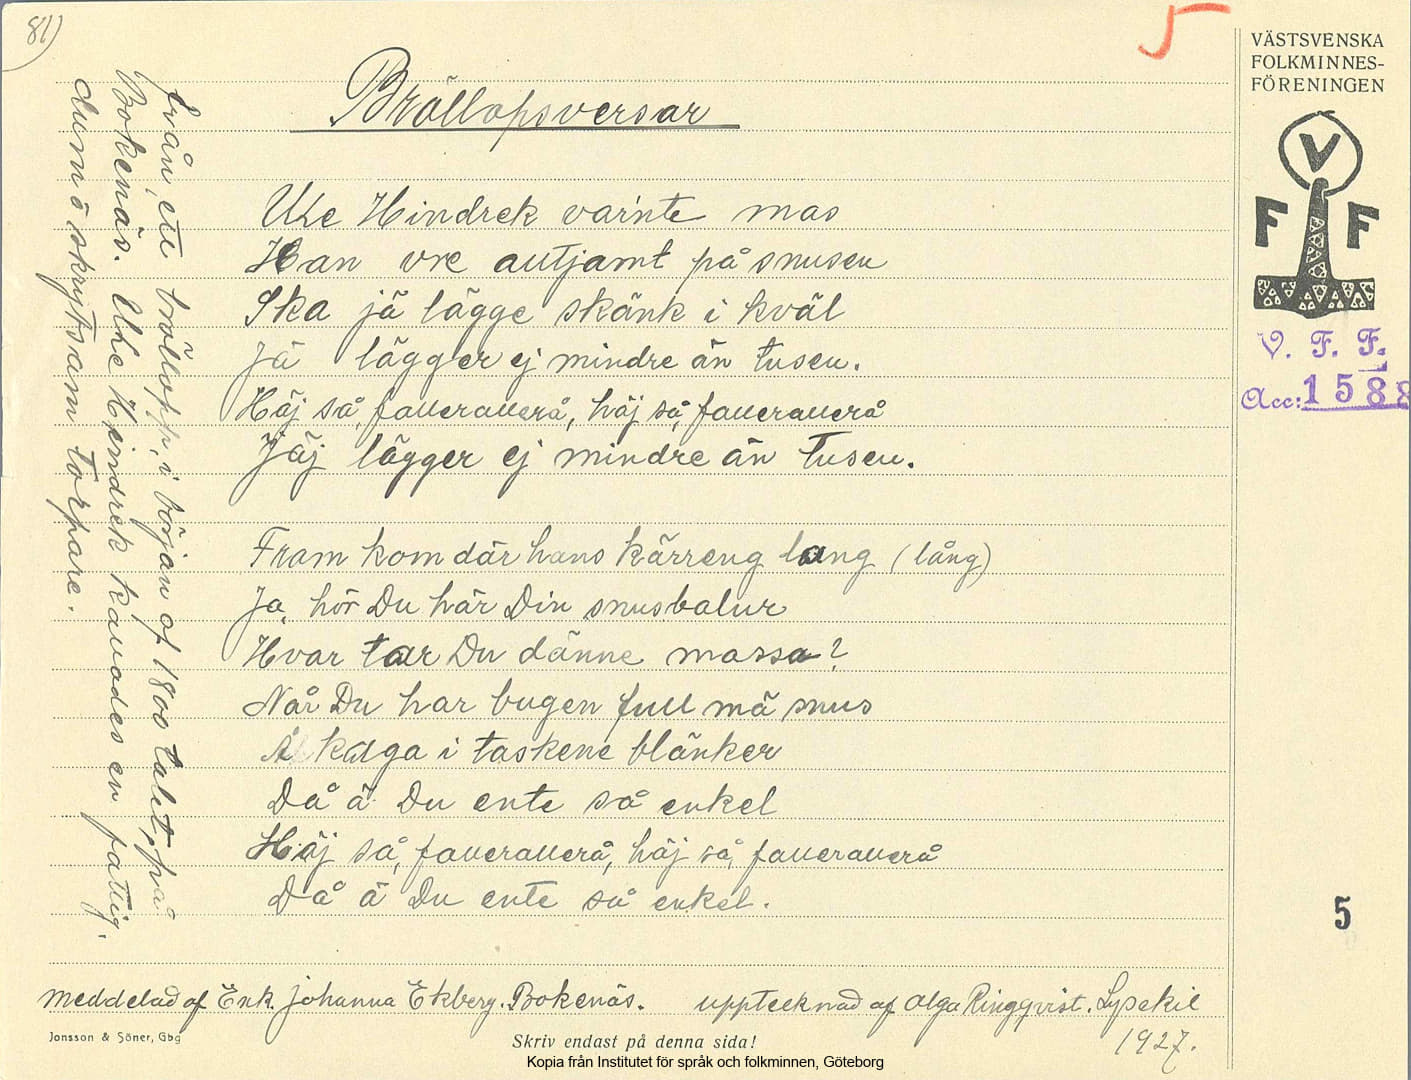 81)
5
Bröllopsversar
Uhe Hindrek varinte mas
Han vre autjamt på snusen
Ska jä lägge skänk i kväl
Jä lägger ej mindre än tusen.
Häj så, fauerauerå, häj så, fauerauerå
Jäj lägger ej mindre än tusen.
Fram kom där hans kärreng lang (lång)
Ja, hör Du här Din snusbalur
Hvar tar Du dänne massa?
När Du har bugen full mä snus
kaga i taskene blänker
Då ä Du ente så enkel
Häj så, fauerauerå, häj så, fauerauerå
Då ä Du ente så enkel.
från ett bröllopp, i början af 1800 talet, på
Bokenäs. Uhe Heindrek kauades en fattig,
dum ö skrytsam torpare.
meddelad af Enk. Johanna Ekberg. Bokenäs. upptecknad af Olga Ringqvist. Lysekil
1927.
Jonsson & Söner, Gbg
Skriv endast på denna sida!
Kopia från Institutet för språk och folkminnen, Göteborg
VÄSTSVENSKA
FOLKMINNES-
FÖRENINGEN
V
F F
V. F. F.
Acc: 1588
5